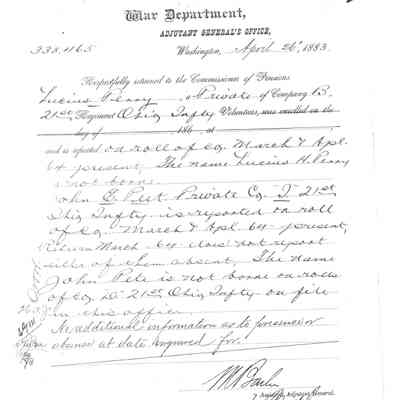 War Department,
ADJUTANT GENERAL'S OFFICE,
338,465
Washington, April 26", 1883.
Respectfully returned to the Commissioner of Pensions
Lucius Perry, Private of Company B,
21st Regiment Ohio Infty Volunteers, was enrolled on the
day of 186 , at
and is reported on roll of Co. March & Apl.
64 present. The name Lucius H. Perry
is not borne.
John E Peet Private Co. 21st
Ohio Infty. is reported on roll
of Co. March & Apl. 64 present,
Return March 64 does not report
either of them absent. The name
John Pete is not borne on rolls
of Co. 21st Ohio Infty on file
in this office.
No additional information as to presence or
absence at date inquired for.